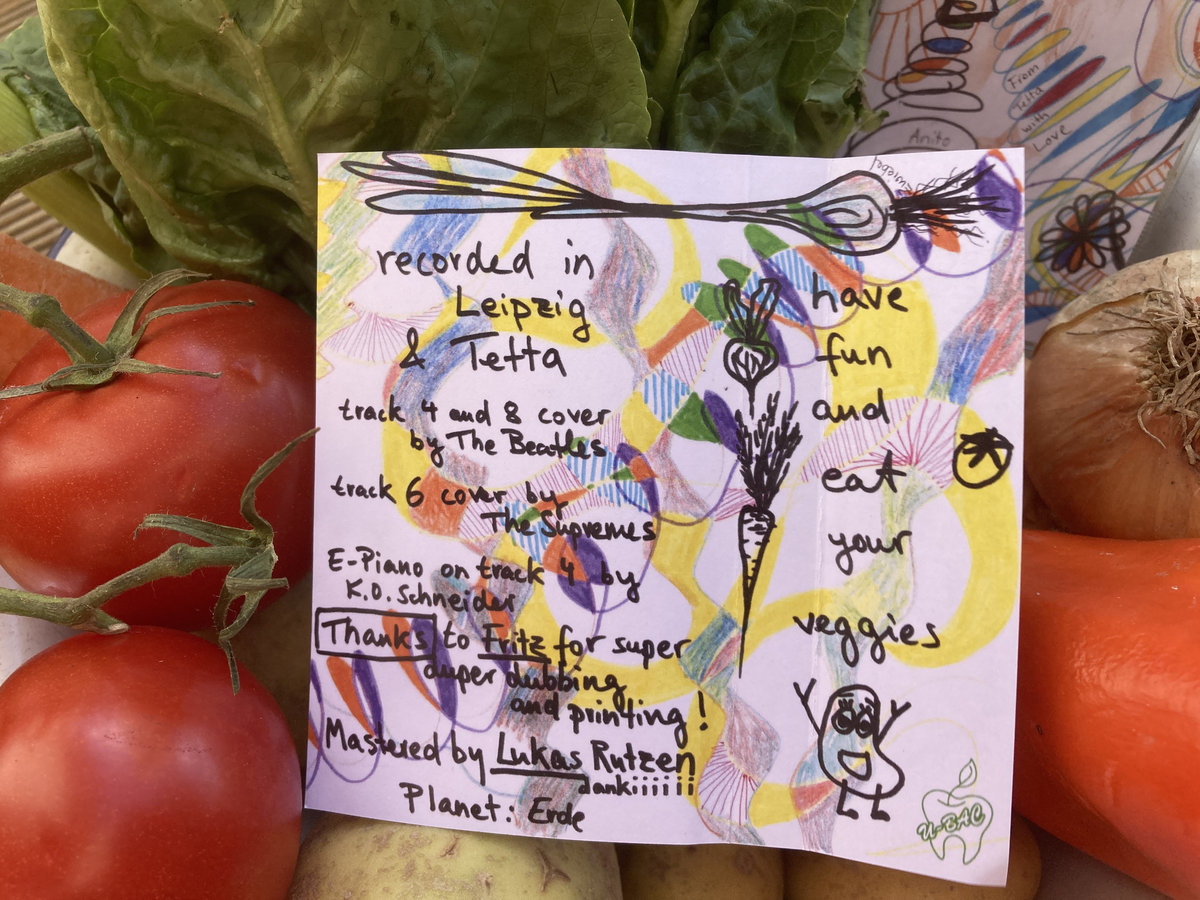 recorded in
Leipzig
& Tetta
track 4 and 8 cover
by The Beatles
track 6 cover by
The Supremes
E-Piano on track 4 by
K.O. Schneider
Thanks to Fritz for super
duper dubbing
and printing!
Mastered by Lukas Rutzen
dankiiiiii
Planet: Erde
have
fun
and
eat
your
veggies
U-BAC
From
Tetta
with
Love
Anito